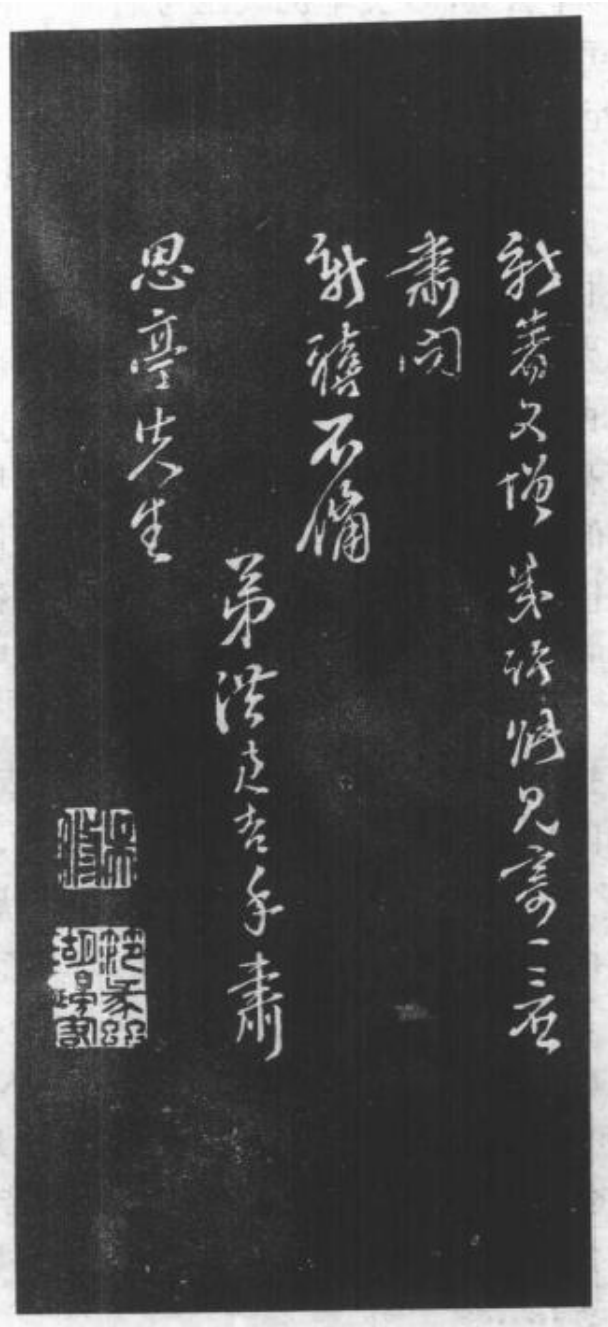 新著又增幾許僃見寄一二否
肅問
新禧不備
弟洪亮吉手肅
思亭先生